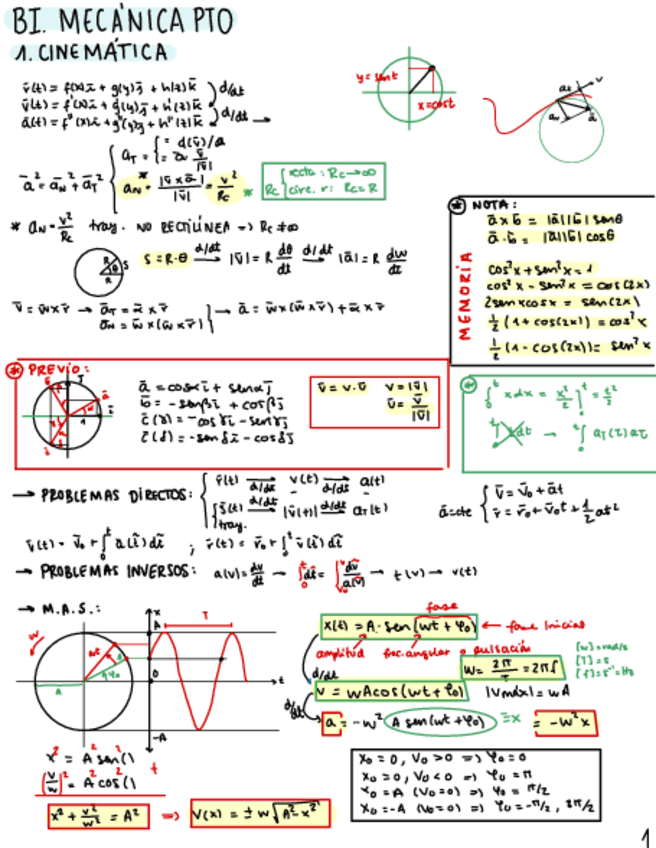 BI. MECÁNICA PTO
1. CINEMÁTICA
y = sent
x = cost
r̄(t) = f(x)ī + g(y)j̄ + h(z)k̄
v̄(t) = f'(x)ī + g'(y)j̄ + h'(z)k̄
ā(t) = f''(x)ī + g''(y)j̄ + h''(z)k̄ →
d/dt
d/dt
ā² = ā_N² + ā_T²
a_N = |v̄ x ā| / |v̄| = v²/Rc
Rc { recta: Rc → ∞
circ. r: Rc = R
* a_N = v²/Rc tray. NO RECTILÍNEA => Rc ≠ ∞
S = R·θ d/dt → |v̄| = R dθ/dt d/dt → |ā| = R dw/dt
v̄ = w̄ x r̄ → ā_T = ᾱ x r̄
ā_N = w̄ x (w̄ x r̄) → ā = w̄ x (w̄ x r̄) + ᾱ x r̄
* NOTA:
ā x b̄ = |ā||b̄| senθ
ā · b̄ = |ā||b̄| cosθ
MEMORIA
cos²x + sen²x = 1
cos²x - sen²x = cos(2x)
2senxcosx = sen(2x)
½ (1 + cos(2x)) = cos²x
½ (1 - cos(2x)) = sen²x
* PREVIO:
ā = cosαī + senαj̄
b̄ = -senβī + cosβj̄
c̄(γ) = -cosγī - senγj̄
c̄(δ) = -senδī - cosδj̄
v̄ = v·ū v = |v̄|
ū = v̄/|v̄|
∫₀ᵗ x dx = x²/2 ]₀ᵗ = t²/2
→ PROBLEMAS DIRECTOS: { r̄(t) d/dt → v̄(t) d/dt → ā(t)
s̄(t) d/dt → |v̄(t)| d/dt → a_T(t)
tray.
ā = cte { v̄ = v̄₀ + āt
r̄ = r̄₀ + v̄₀t + ½at²
v̄(t) = v̄₀ + ∫₀ᵗ ā(t̄)dt̄ ; r̄(t) = r̄₀ + ∫₀ᵗ v̄(t̄)dt̄
→ PROBLEMAS INVERSOS: a(v) = dv/dt → ∫₀ᵗ dt̄ = ∫ dv̄/a(v̄) → t(v) → v(t)
→ M.A.S.:
fase
x(t) = A · sen(wt + φ₀) ← fase inicial
amplitud frec. angular o pulsación
w = 2π/T = 2πf
[w] = rad/s
[T] = s
[f] = s⁻¹ = Hz
d/dt
v = wA cos(wt + φ₀) |Vmáx| = wA
d/dt
a = -w² A sen(wt + φ₀) = x = -w²x
x² = A² sen²()
(v/w)² = A² cos²()
x² + v²/w² = A² => v(x) = ± w √(A² - x²)
x₀ = 0, v₀ > 0 => φ₀ = 0
x₀ = 0, v₀ < 0 => φ₀ = π
x₀ = A (v₀ = 0) => φ₀ = π/2
x₀ = -A (v₀ = 0) => φ₀ = -π/2, 3π/2
1